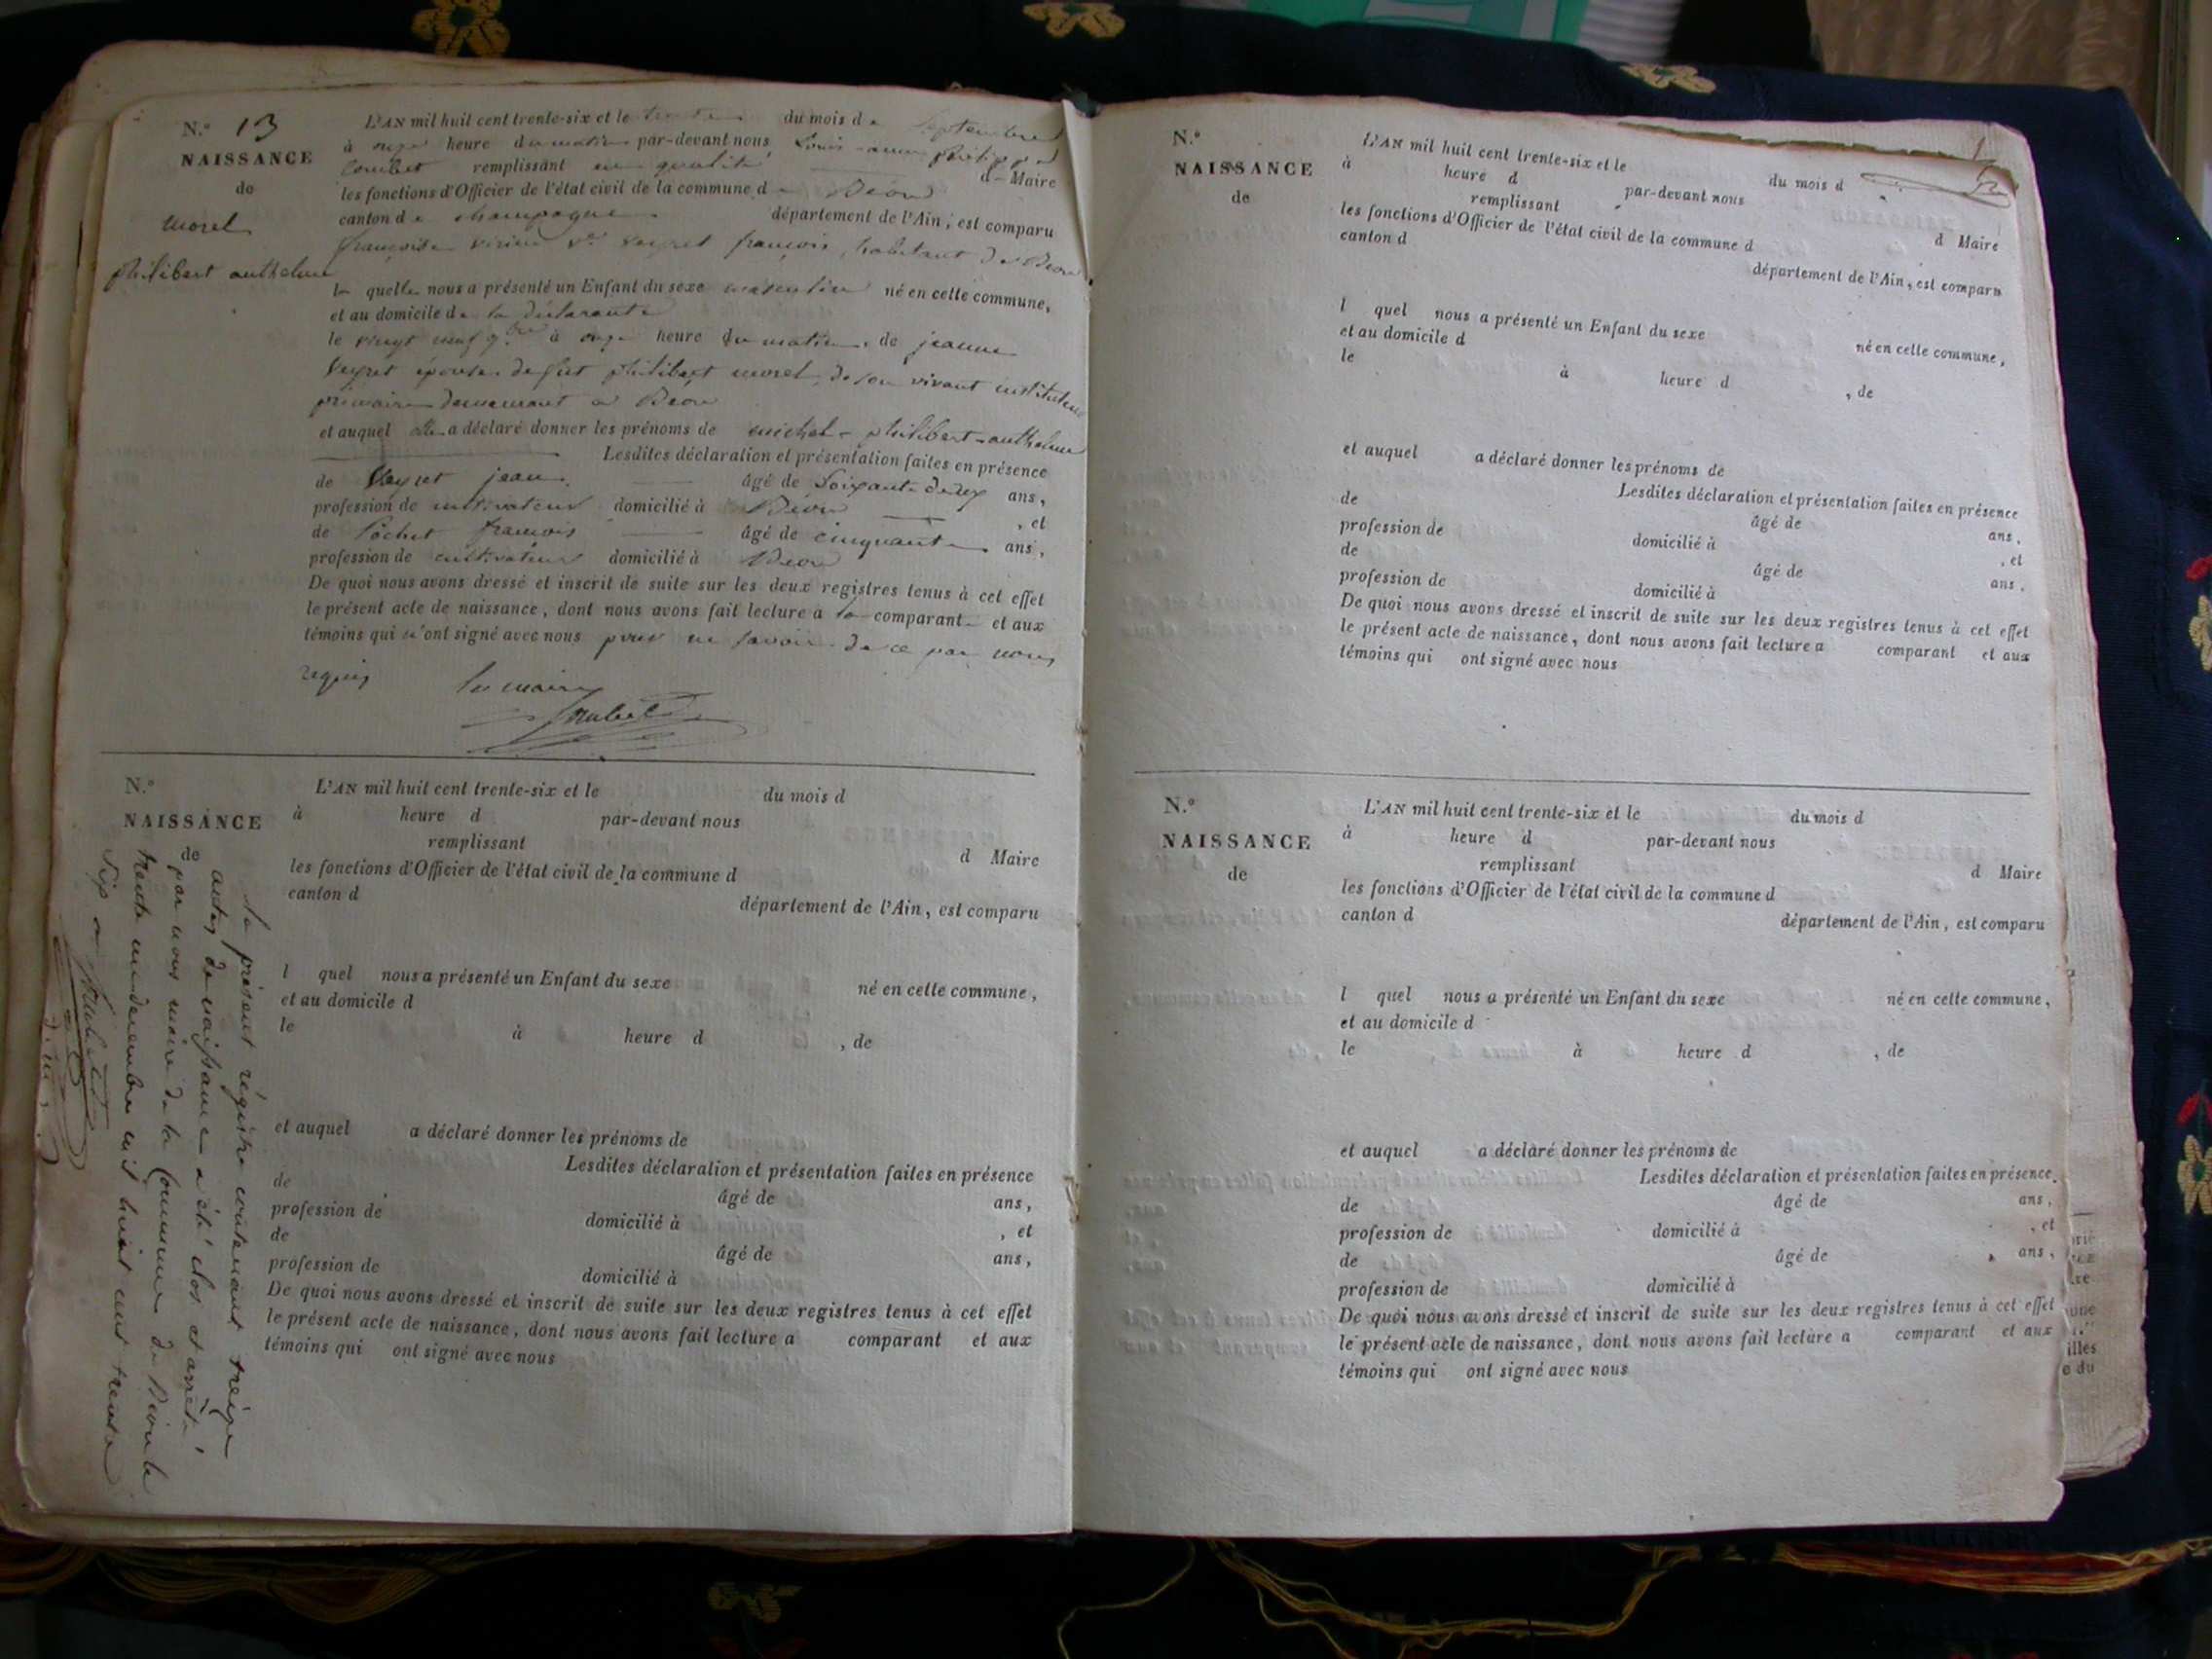 N.º 13
NAISSANCE
de
morel
philibert anthelme
L'AN mil huit cent trente-six et le trente du mois de Septembre
à onze heure du matin par-devant nous Louis
remplissant en qualité d Maire
les fonctions d'Officier de l'état civil de la commune de Béon
canton de champagne département de l'Ain, est comparu
françoise vve veyret françois, habitant de Béon
l quelle nous a présenté un Enfant du sexe masculin né en cette commune,
et au domicile de la déclarante
le vingt neuf 7bre à onze heure du matin, de jeanne
veyret épouse de fut philibert morel, de son vivant instituteur
primaire demeurant à Béon
et auquel elle a déclaré donner les prénoms de michel-philibert-anthelme
Lesdites déclaration et présentation faites en présence
de Veyret jean âgé de Soixante deux ans,
profession de cultivateur domicilié à Béon , et
de Pochet françois âgé de cinquante ans,
profession de cultivateur domicilié à Béon
De quoi nous avons dressé et inscrit de suite sur les deux registres tenus à cet effet
le présent acte de naissance, dont nous avons fait lecture a la comparante et aux
témoins qui n'ont signé avec nous pour ne savoir de ce par nous
requis
le maire
N.º
NAISSANCE
de
L'AN mil huit cent trente-six et le du mois d
à heure d par-devant nous
remplissant d Maire
les fonctions d'Officier de l'état civil de la commune d
canton d département de l'Ain, est comparu
l quel nous a présenté un Enfant du sexe né en cette commune,
et au domicile d
le à heure d , de
et auquel a déclaré donner les prénoms de
Lesdites déclaration et présentation faites en présence
de âgé de ans,
profession de domicilié à , et
de âgé de ans,
profession de domicilié à
De quoi nous avons dressé et inscrit de suite sur les deux registres tenus à cet effet
le présent acte de naissance, dont nous avons fait lecture a comparant et aux
témoins qui ont signé avec nous
Le présent régistre contenant treize
actes de naissance a été clos et arrêté
par nous maire de la Commune de Béon le
trente un décembre mil huit cent trente
Six
N.º
NAISSANCE
de
L'AN mil huit cent trente-six et le du mois d
à heure d par-devant nous
remplissant d Maire
les fonctions d'Officier de l'état civil de la commune d
canton d département de l'Ain, est comparu
l quel nous a présenté un Enfant du sexe né en cette commune,
et au domicile d
le à heure d , de
et auquel a déclaré donner les prénoms de
Lesdites déclaration et présentation faites en présence
de âgé de ans,
profession de domicilié à , et
de âgé de ans,
profession de domicilié à
De quoi nous avons dressé et inscrit de suite sur les deux registres tenus à cet effet
le présent acte de naissance, dont nous avons fait lecture a comparant et aux
témoins qui ont signé avec nous
N.º
NAISSANCE
de
L'AN mil huit cent trente-six et le du mois d
à heure d par-devant nous
remplissant d Maire
les fonctions d'Officier de l'état civil de la commune d
canton d département de l'Ain, est comparu
l quel nous a présenté un Enfant du sexe né en cette commune,
et au domicile d
le à heure d , de
et auquel a déclaré donner les prénoms de
Lesdites déclaration et présentation faites en présence
de âgé de ans,
profession de domicilié à , et
de âgé de ans,
profession de domicilié à
De quoi nous avons dressé et inscrit de suite sur les deux registres tenus à cet effet
le présent acte de naissance, dont nous avons fait lecture a comparant et aux
témoins qui ont signé avec nous